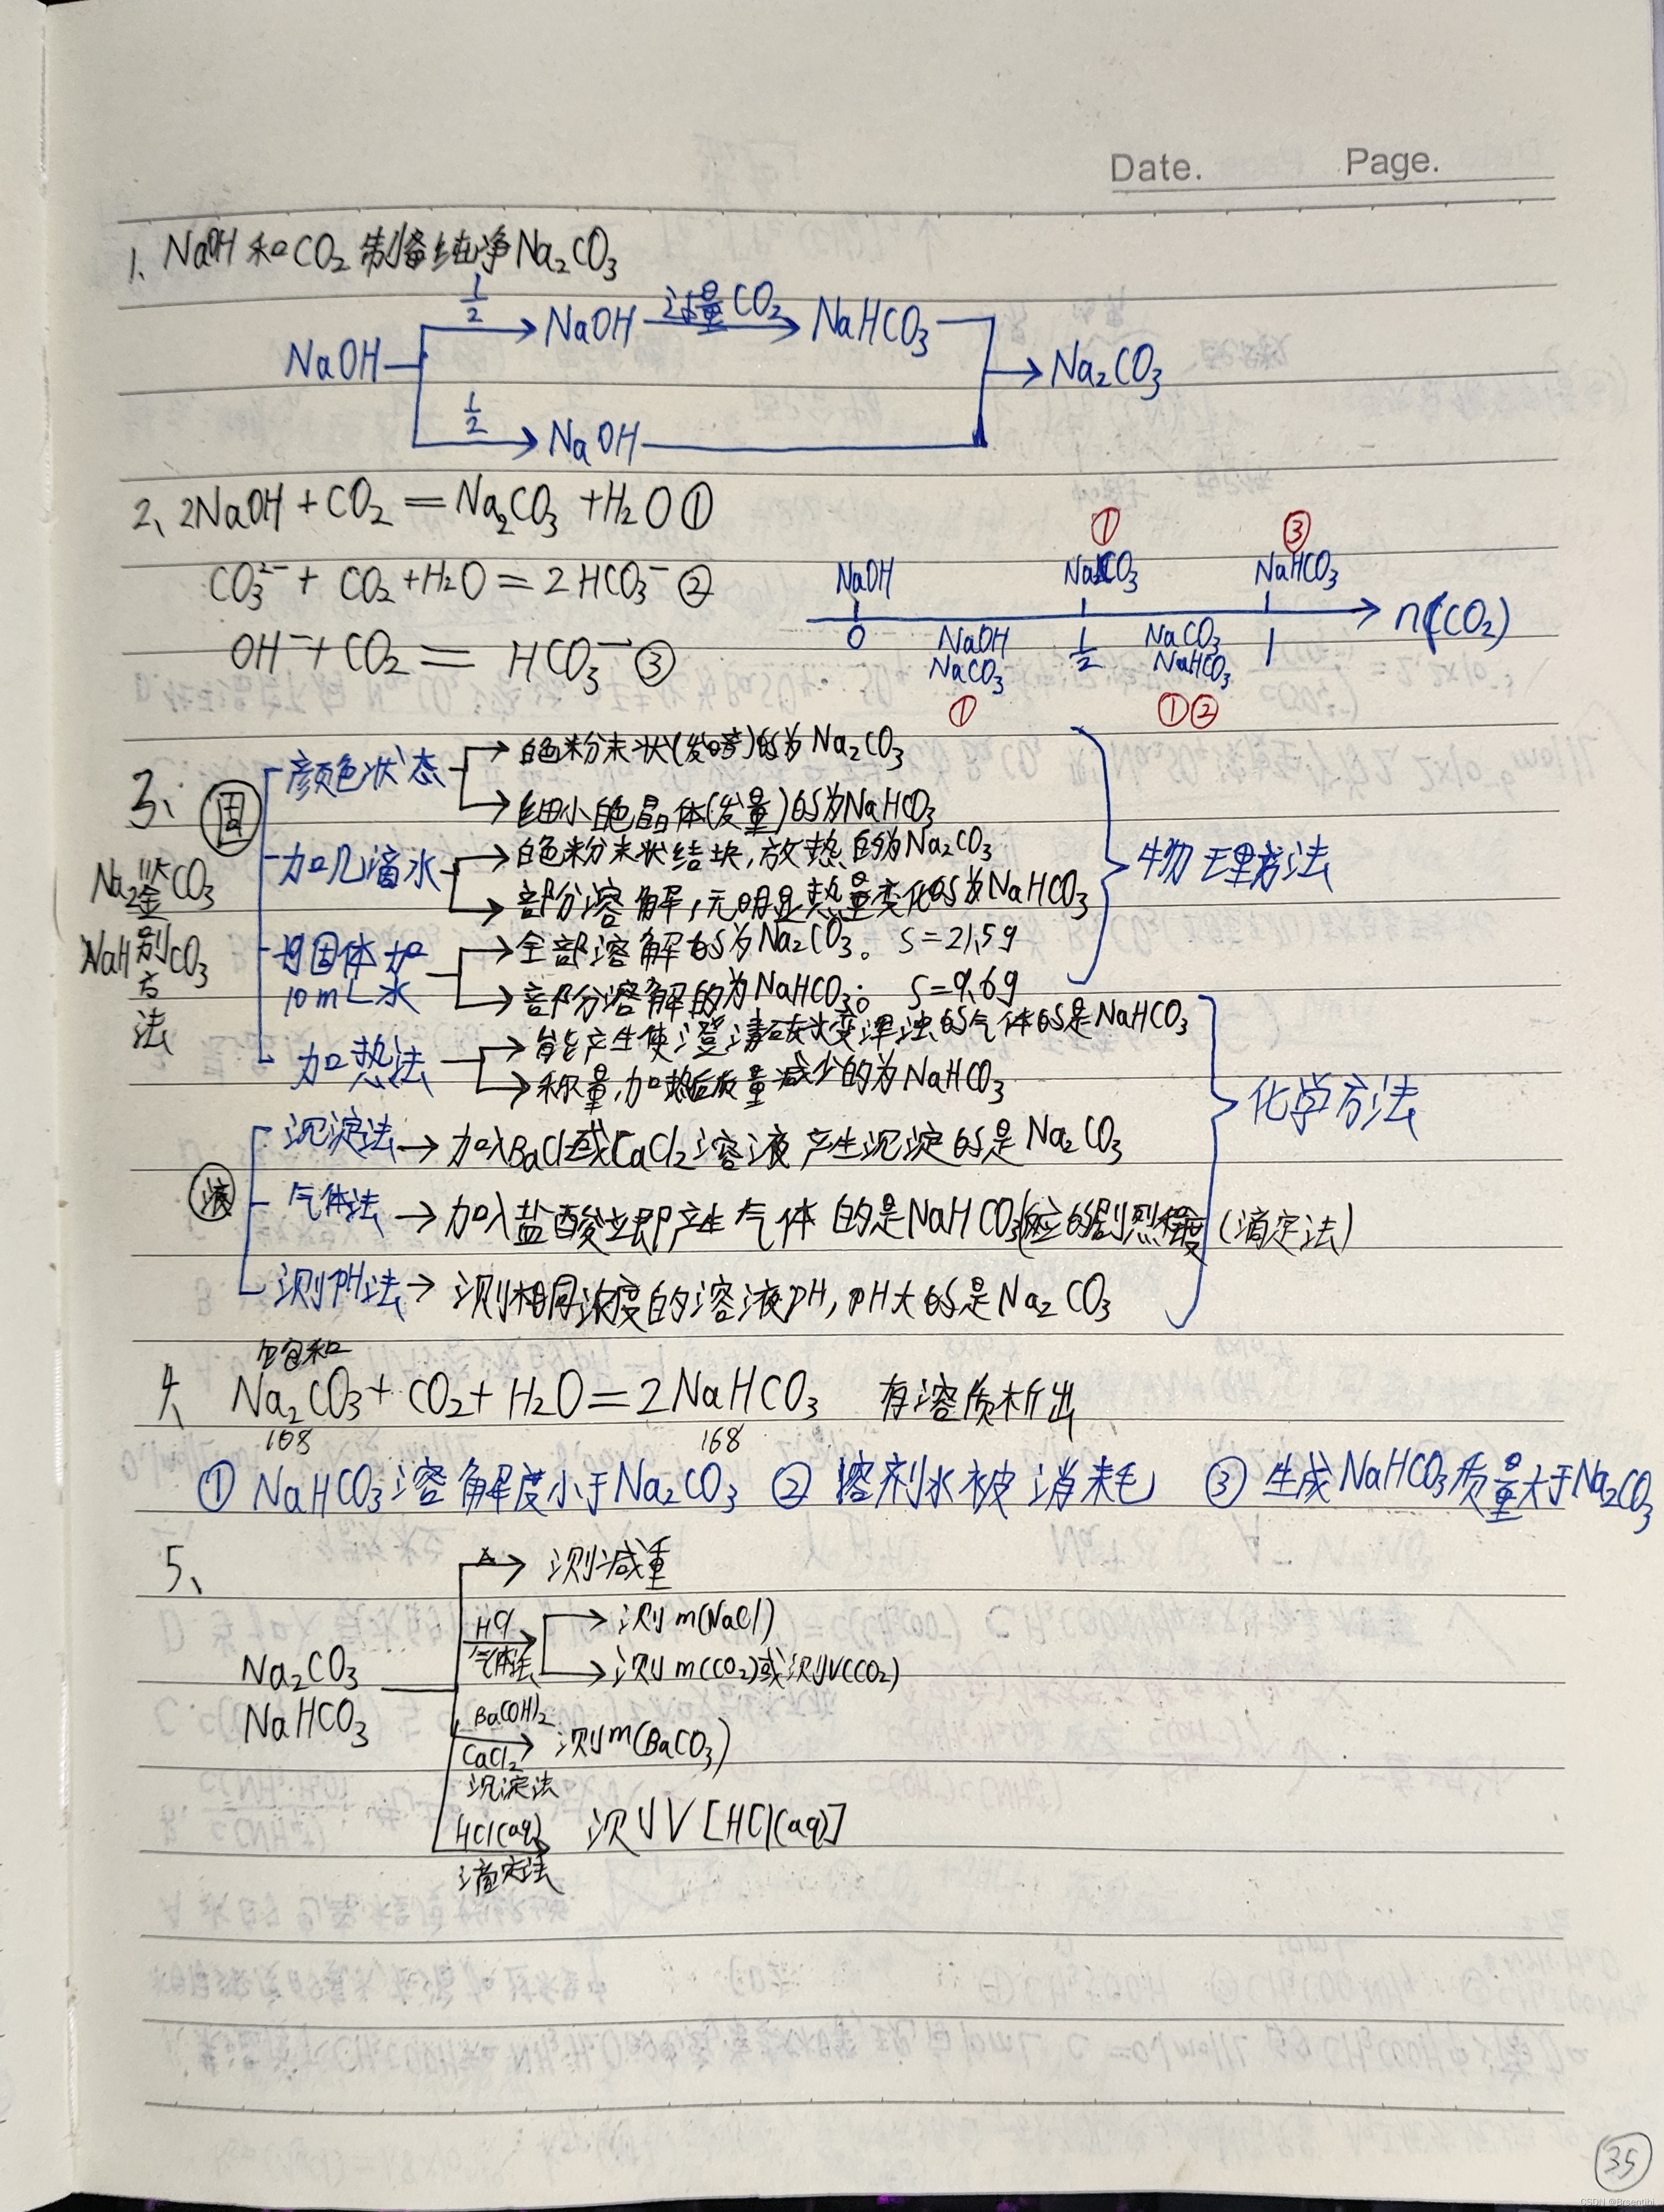 Date. Page.
1、NaOH和CO₂制备纯净Na₂CO₃
1/2 NaOH 过量CO₂ NaHCO₃
NaOH Na₂CO₃
1/2 NaOH
2、2NaOH+CO₂=Na₂CO₃+H₂O①
CO₃²⁻+CO₂+H₂O=2HCO₃⁻②
OH⁻+CO₂=HCO₃⁻③
① ③
NaOH NaCO₃ NaHCO₃
0 1/2 1 n(CO₂)
NaOH NaCO₃
NaCO₃ NaHCO₃
① ①②
3、
Na₂CO₃
NaHCO₃
鉴别方法
固
颜色状态
白色粉末状(发嫎)的为Na₂CO₃
细小白色晶体(发量)的为NaHCO₃
加几滴水
白色粉末状结块,放热的为Na₂CO₃
部分溶解,无明显热量变化的为NaHCO₃
固体加
10mL水
全部溶解的为Na₂CO₃。S=21.5g
部分溶解的为NaHCO₃。S=9.6g
物理方法
加热法
能产生使澄清石灰水变浑浊的气体的是NaHCO₃
称量,加热后质量减少的为NaHCO₃
液
沉淀法→加入BaCl₂或CaCl₂溶液产生沉淀的是Na₂CO₃
气体法→加入盐酸立即产生气体的是NaHCO₃(反应的剧烈程度(滴定法)
测PH法→测相同浓度的溶液PH,pH大的是Na₂CO₃
化学方法
饱和
4、Na₂CO₃+CO₂+H₂O=2NaHCO₃ 有溶质析出
168 168
①NaHCO₃溶解度小于Na₂CO₃ ②溶剂水被消耗 ③生成NaHCO₃质量大于Na₂CO₃
5、
△ 测减重
Na₂CO₃
NaHCO₃
HCl
气体法
测m(NaCl)
测m(CO₂)或测V(CO₂)
Ba(OH)₂
CaCl₂
沉淀法
测m(BaCO₃)
HCl(aq)
滴定法
测V[HCl(aq)]
35
CSDN @Brsentibi